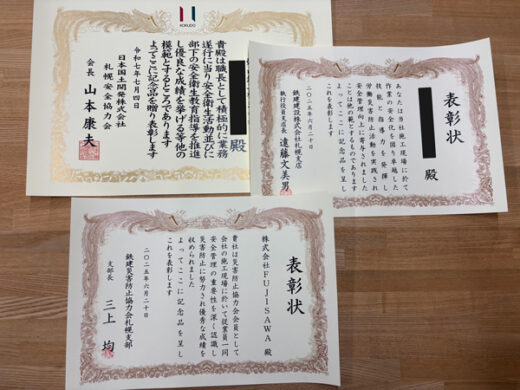 KOKUDO
殿
貴殿は職長として積極的に業務
遂行に当り安全衛生活動並びに
部下の安全衛生教育指導を推進
し優良な成績を挙げる等他の
模範とするところであります
よってここに記念品を贈り表彰します
令和七年七月四日
日本国土開発株式会社
札幌安全協力会
会長 山本康夫
表彰状
殿
あなたは当社施工現場に於て
作業の安全化を図り卓越した
技能と指導力を発揮し
労働災害防止活動を実践され
安全管理向上に寄与されました
ことは他の模範とするものであります
よってここに記念品を呈し
これを表彰します
二〇二五年六月二十日
鉄建建設株式会社札幌支店
執行役員支店長 遠藤文美男
表彰状
株式会社FUJISAWA 殿
貴社は災害防止協力会会員として
会社の施工現場に於いて従業員一同
安全管理の重要性を深く認識し
災害防止に努力され優秀な成績を
収められました
よってここに記念品を呈し
これを表彰します
二〇二五年六月二十日
鉄建災害防止協力会札幌支部
支部長 三上 均